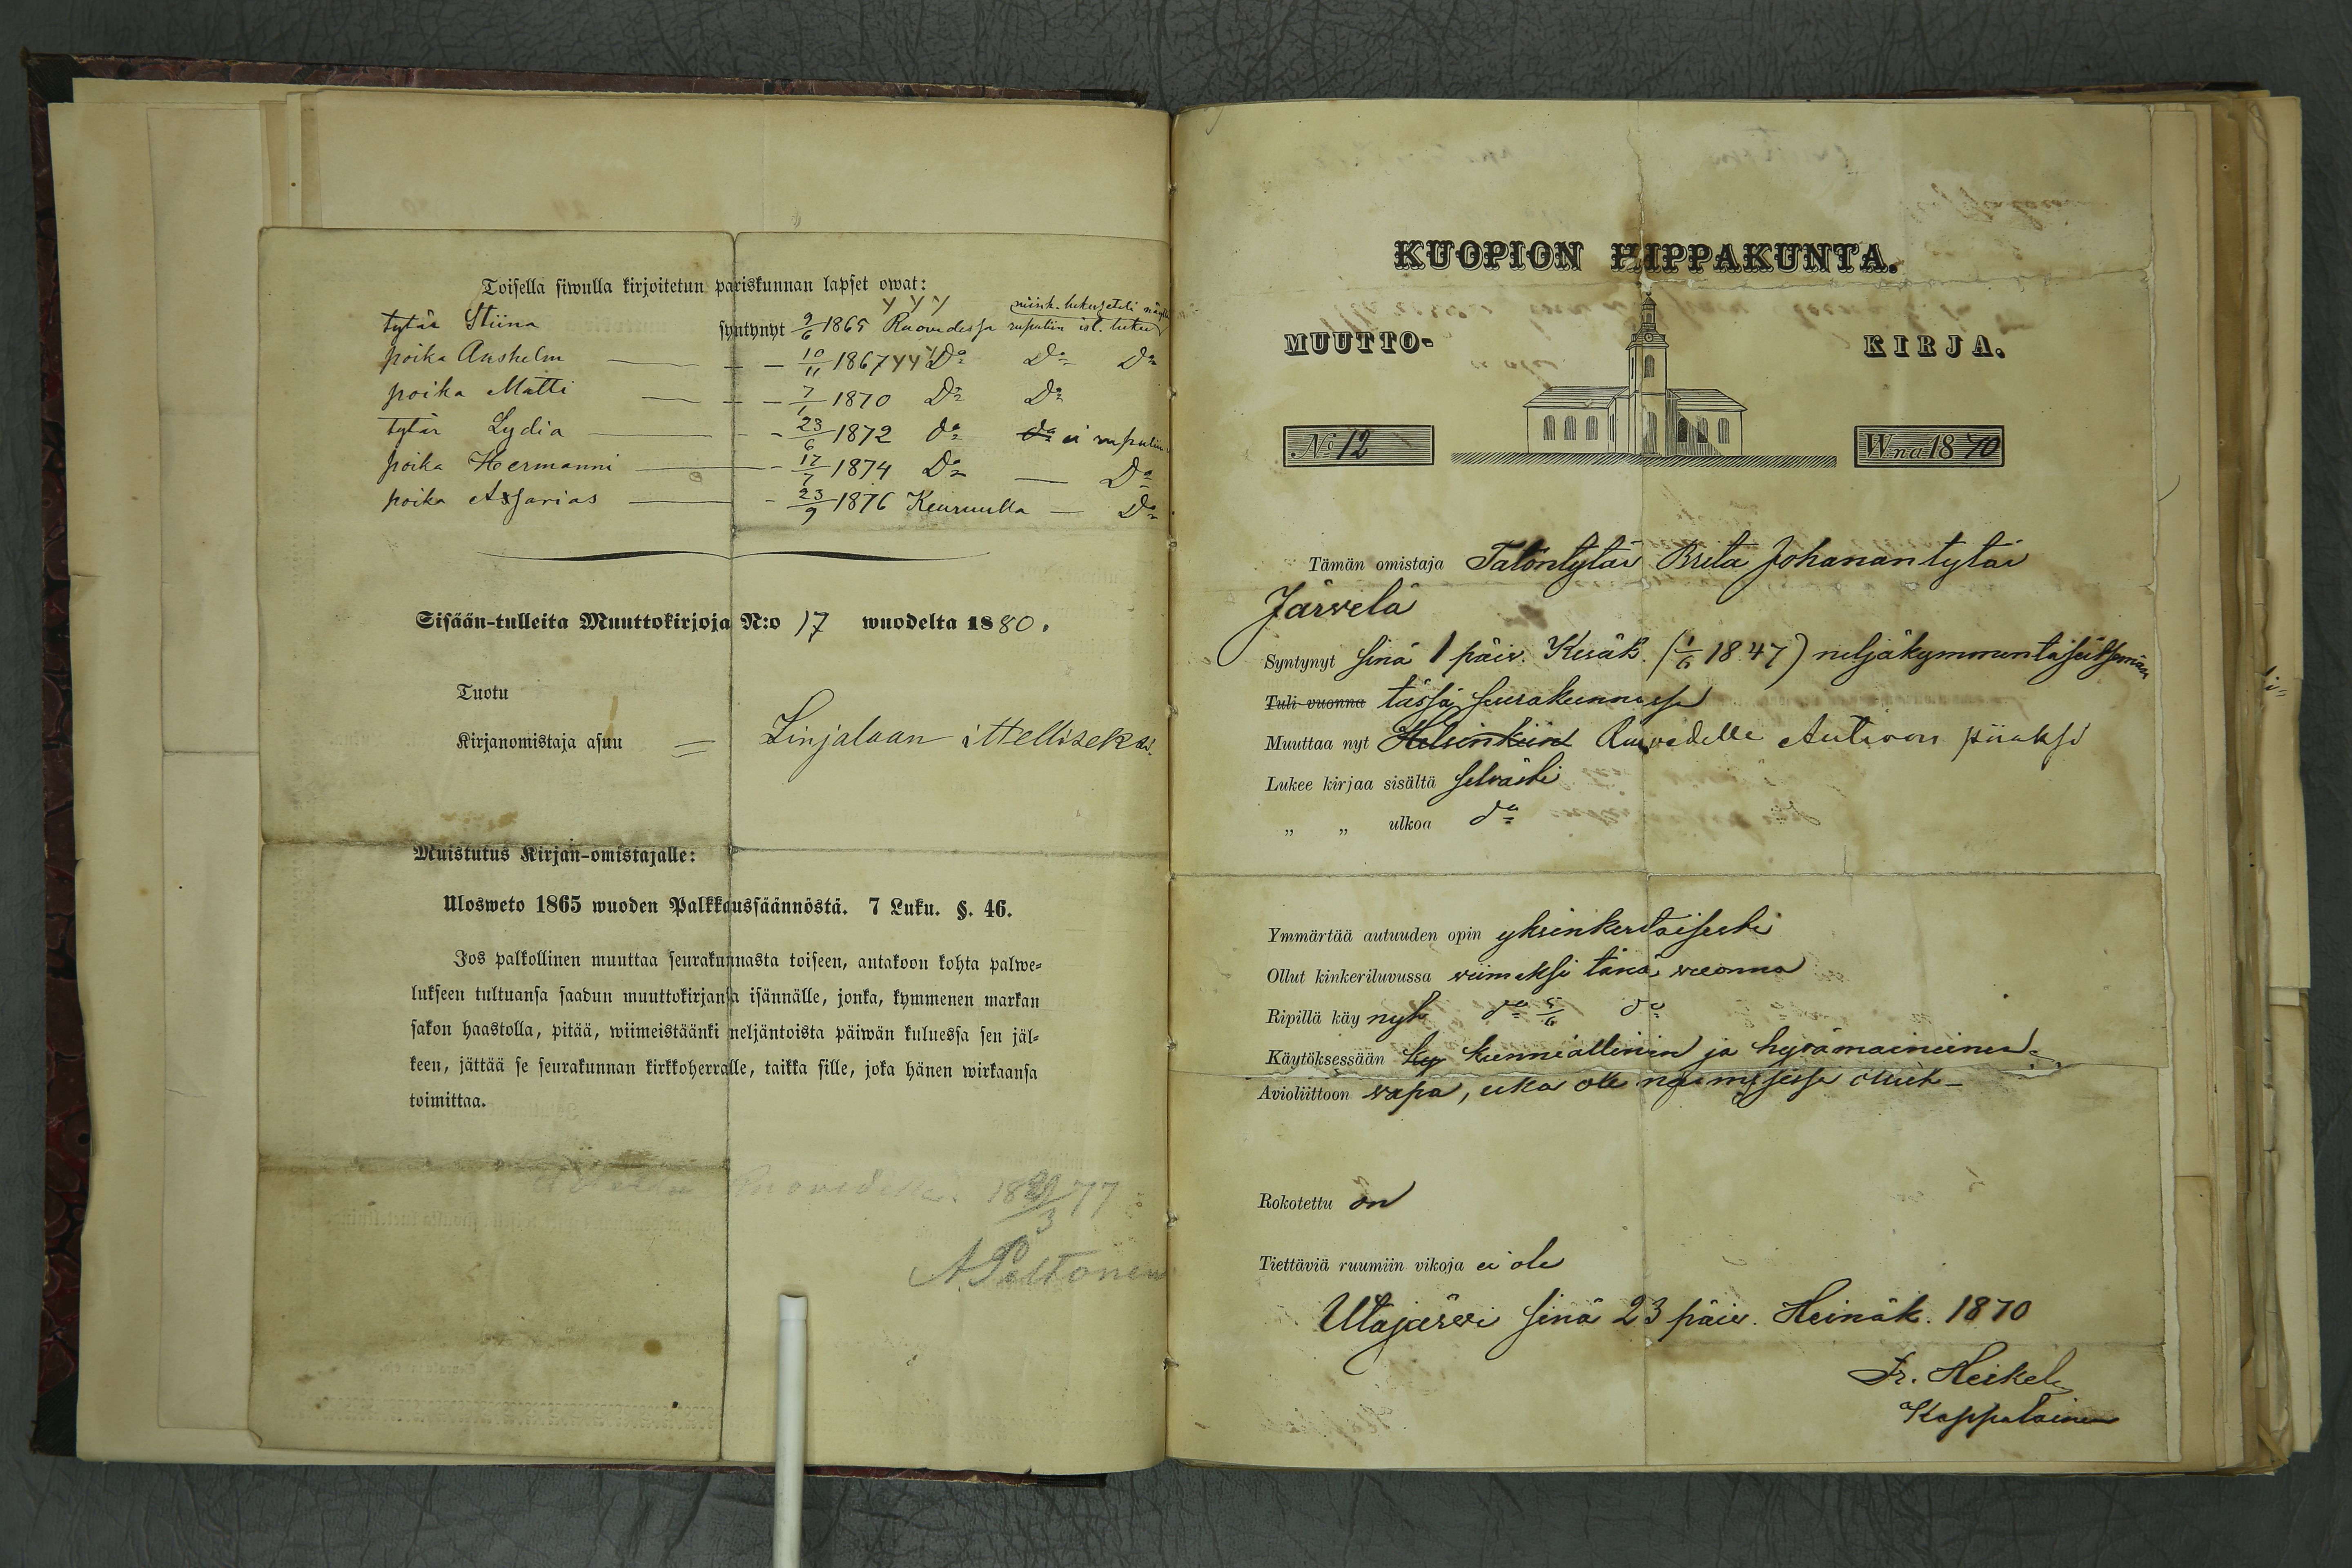 Toisella siwulla kirjoitetun pariskunnan lapset owat:
tytär Stiina syntynyt 9/6 1865 Ruovedessä
poika Anshelm — — 10/11 1867 Do Do Do
poika Matti — — 7/1 1870 Do Do
tytär Lydia — — 23/6 1872 do do ei
poika Hermanni — — 17/7 1874 Do — Do
poika Assarias — — 23/9 1876 Keuruulla — Do
Sisään-tulleita Muuttokirjoja N:o 17 wuodelta 1880.
Tuotu
Kirjanomistaja asuu = Linjalaan ittelliseksi.
Muistutus Kirjan-omistajalle:
Ulosweto 1865 wuoden Palkkaussäännöstä. 7 Luku. §. 46.
Jos palkollinen muuttaa seurakunnasta toiseen, antakoon kohta palwe-
lukseen tultuansa saadun muuttokirjansa isännälle, jonka, kymmenen markan
sakon haastolla, pitää, wiimeistäänki neljäntoista päiwän kuluessa sen jäl-
keen, jättää se seurakunnan kirkkoherralle, taikka sille, joka hänen wirkaansa
toimittaa.
Ruovedellä
A. Peltonen
KUOPION HIPPAKUNTA.
MUUTTO- KIRJA.
No 12 Wna 1870
Tämän omistaja Talontytär Brita Johanantytär
Järvelä
Syntynyt sinä 1 päiv. Kesäk. (1/6 1847) neljäkymmentäseitsemän
Tuli vuonna tässä seurakunnassa
Muuttaa nyt Helsinkiin Ruovedelle piiaksi
Lukee kirjaa sisältä selvästi
„ „ ulkoa do
Ymmärtää autuuden opin yksinkertaisesti
Ollut kinkeriluvussa viimeksi tänä vuonna
Ripillä käy nyt do 5/6 do
Käytöksessään ky kunniallinen ja hyvämaineinen.
Avioliittoon vapa, eikä ole naimisissa ollut
Rokotettu on
Tiettäviä ruumiin vikoja ei ole
Utajärvi sinä 23 päiv. Heinäk. 1870
Fr. Heikel
Kappalainen